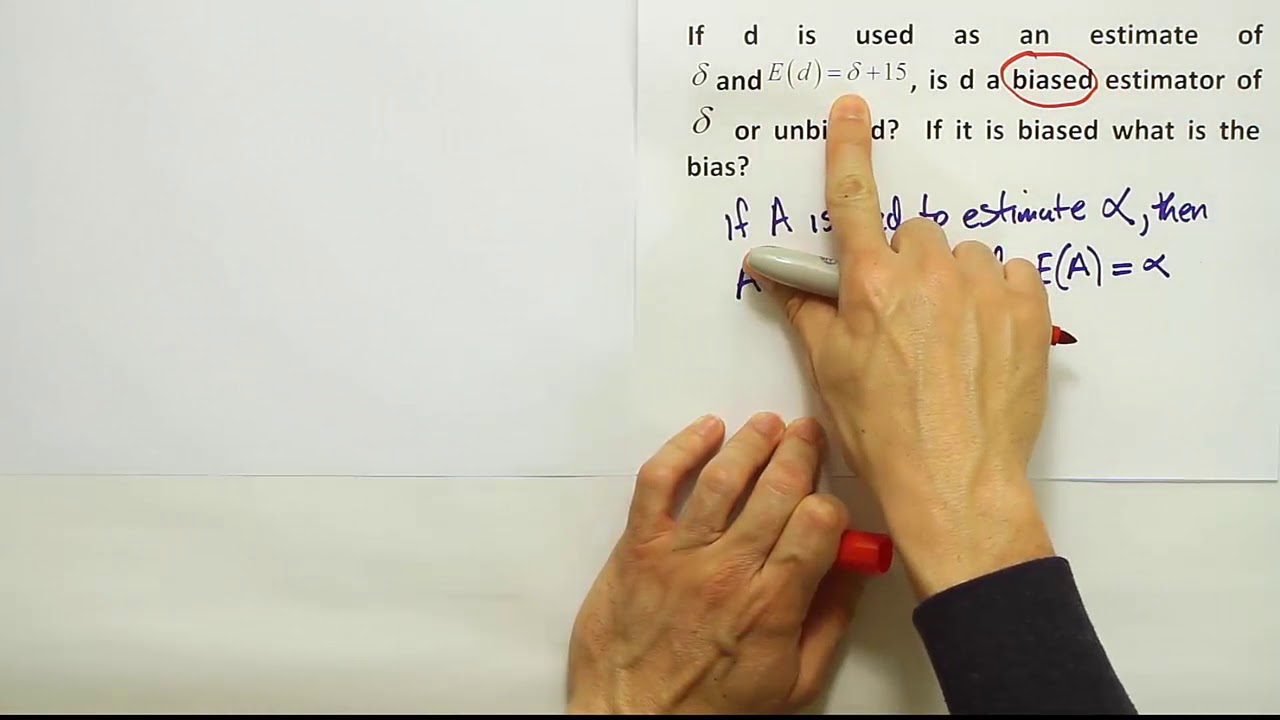 If d is used as an estimate of
δ and E(d) = δ + 15, is d a biased estimator of
δ or unbi d? If it is biased what is the
bias?
if A is ed to estimate α, then
A E(A) = α